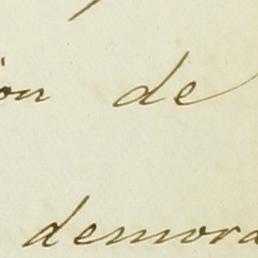 ion de
demora